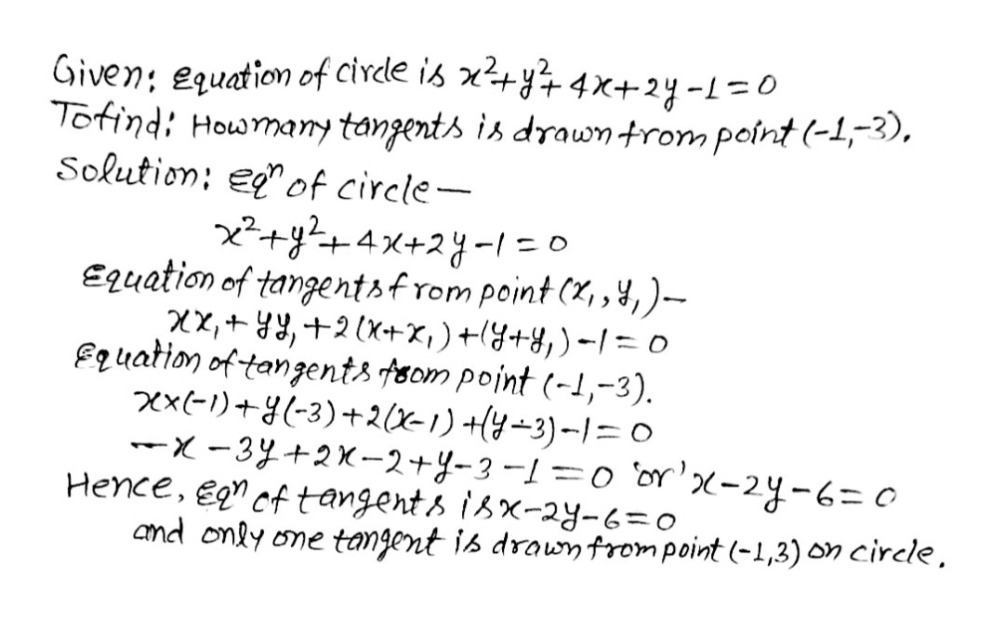 Given: equation of circle is x²+y²+4x+2y-1=0
To find: How many tangents is drawn from point (-1,-3).
Solution: eqⁿ of circle —
x²+y²+4x+2y-1=0
Equation of tangents from point (x₁,y₁)-
xx₁+yy₁+2(x+x₁)+(y+y₁)-1=0
Equation of tangents from point (-1,-3).
x×(-1)+y(-3)+2(x-1)+(y-3)-1=0
-x-3y+2x-2+y-3-1=0 'or' x-2y-6=0
Hence, eqⁿ of tangents is x-2y-6=0
and only one tangent is drawn from point (-1,3) on circle.